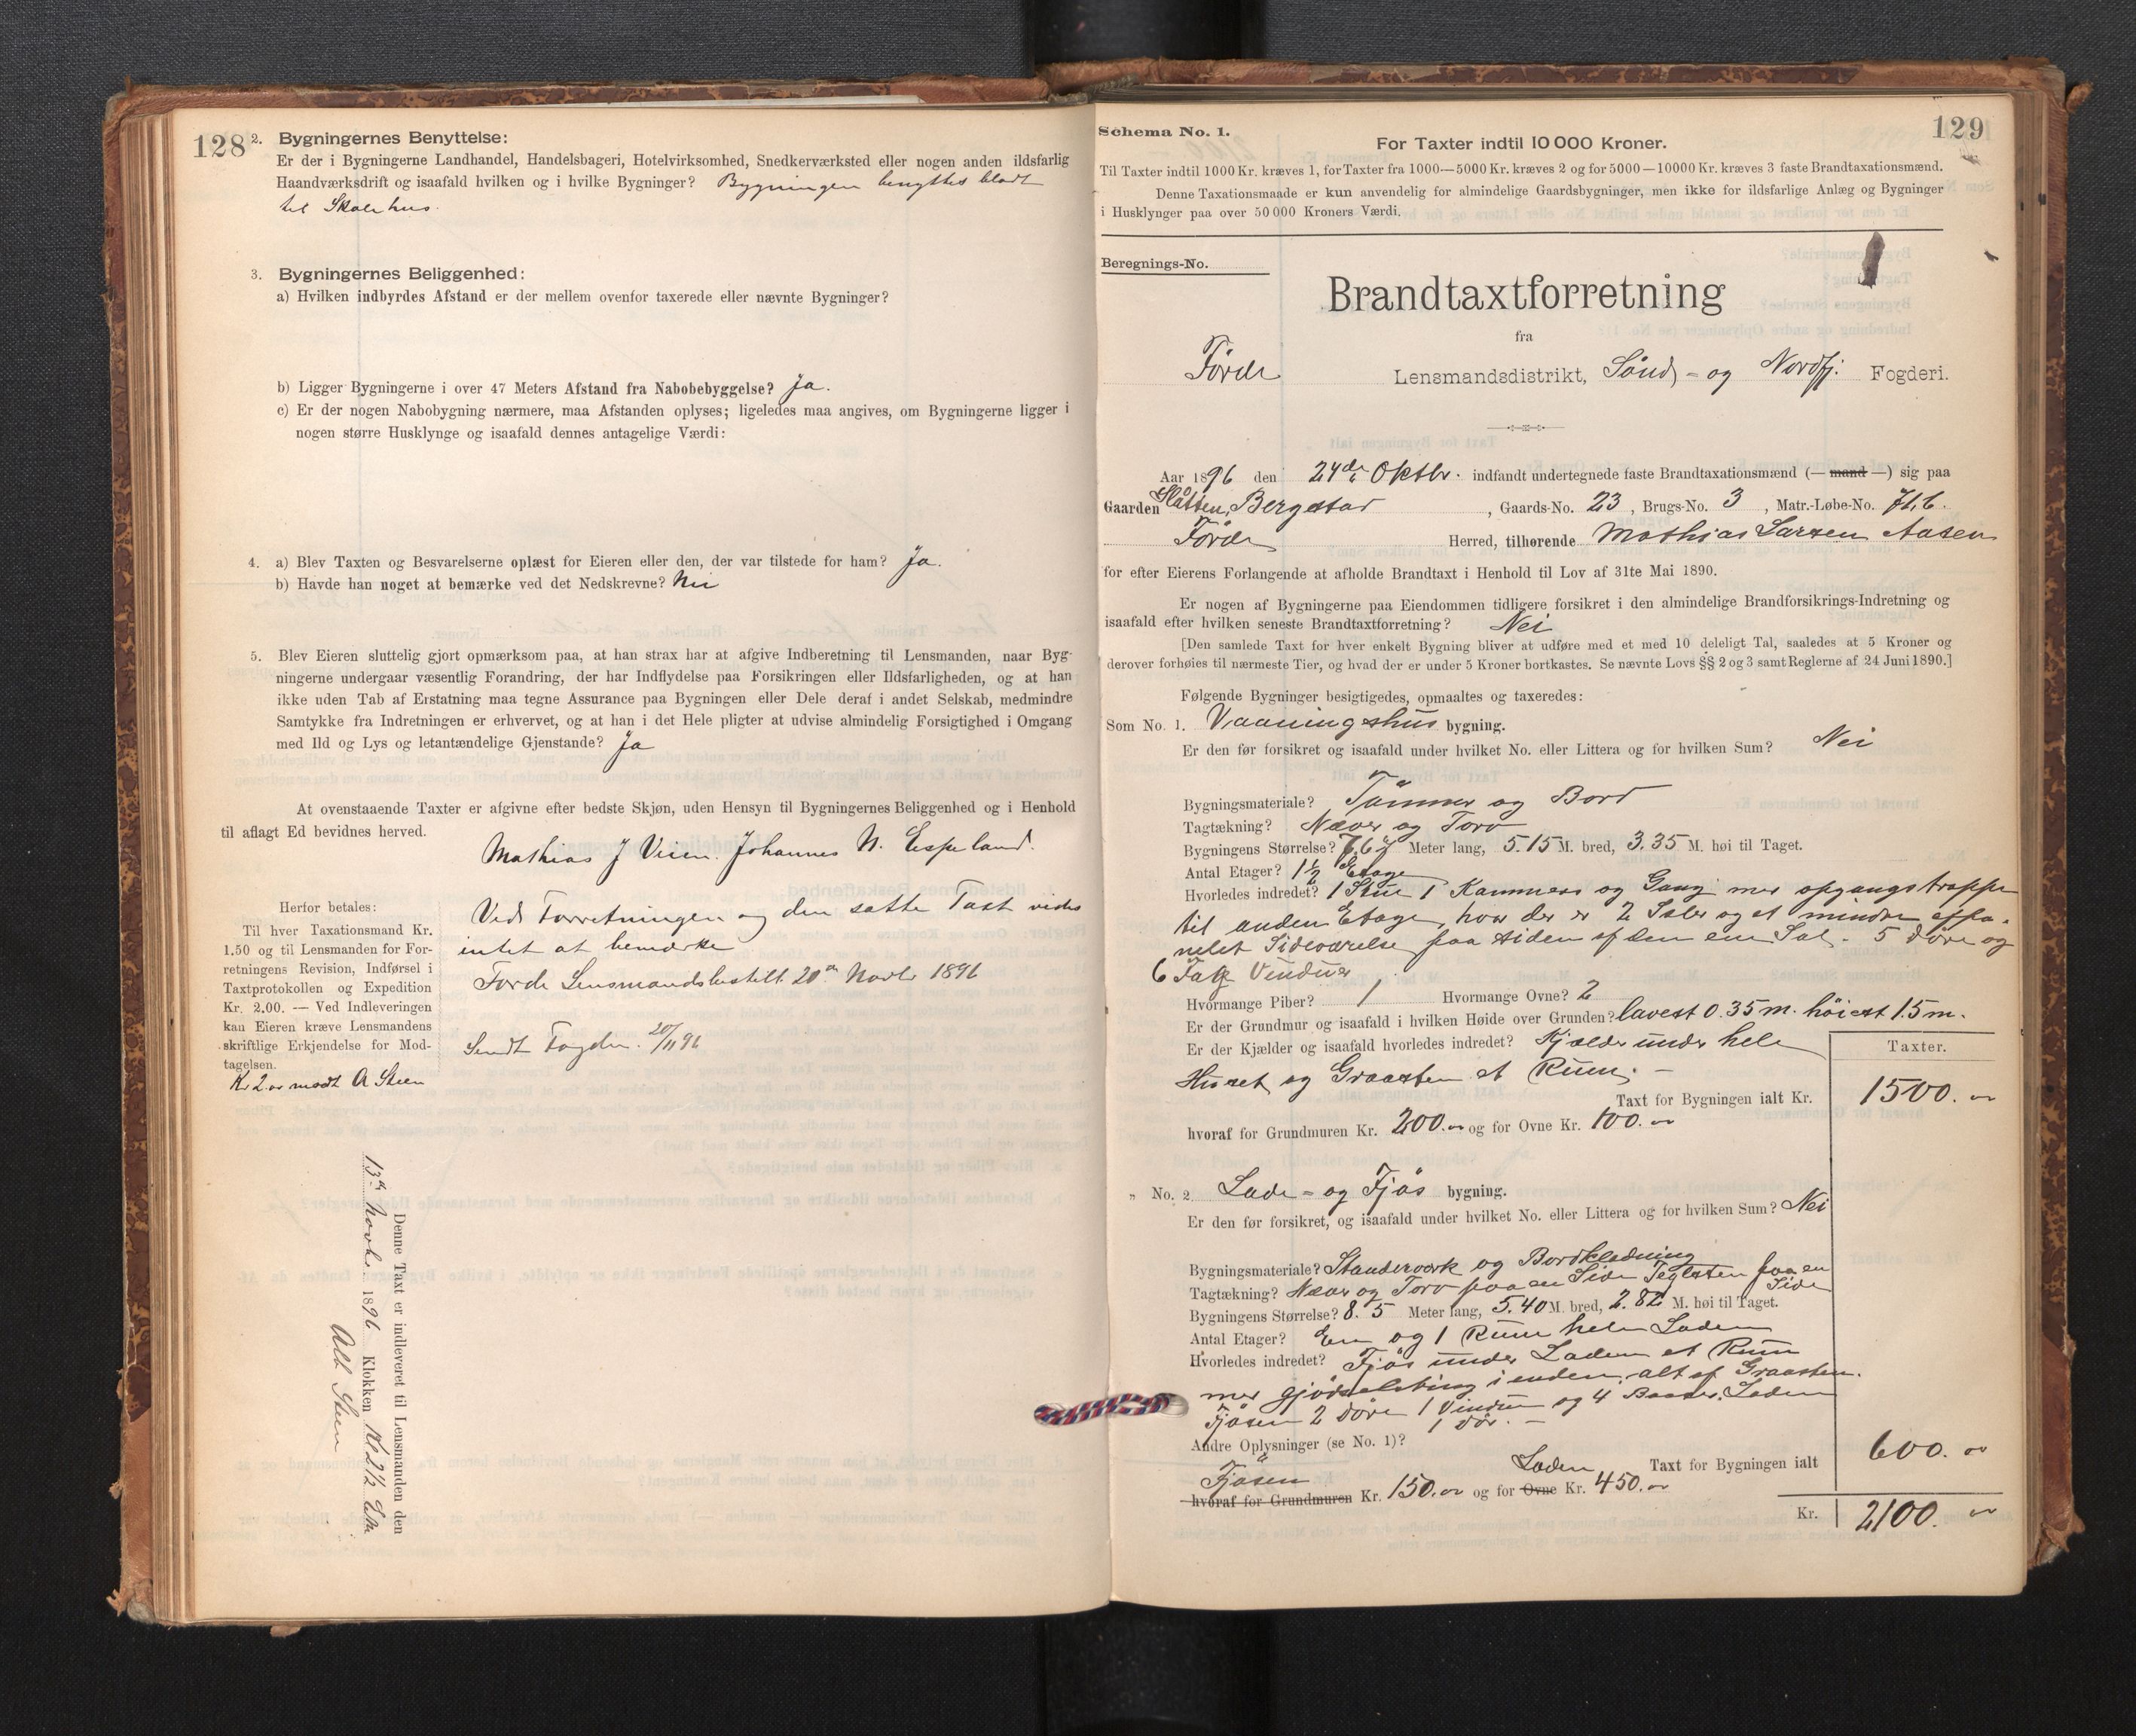 128
2. Bygningernes Benyttelse:
Er der i Bygningerne Landhandel, Handelsbageri, Hotelvirksomhed, Snedkerværksted eller nogen anden ildsfarlig
Haandværksdrift og isaafald hvilken og i hvilke Bygninger? Bygningen benyttes blodt
til Skolehus.
3. Bygningernes Beliggenhed:
a) Hvilken indbyrdes Afstand er der mellem ovenfor taxerede eller nævnte Bygninger?
b) Ligger Bygningerne i over 47 Meters Afstand fra Nabobebyggelse? Ja.
c) Er der nogen Nabobygning nærmere, maa Afstanden oplyses; ligeledes maa angives, om Bygningerne ligger i
nogen større Husklynge og isaafald dennes antagelige Værdi:
4. a) Blev Taxten og Besvarelserne oplæst for Eieren eller den, der var tilstede for ham? Ja.
b) Havde han noget at bemærke ved det Nedskrevne? Nei
5. Blev Eieren sluttelig gjort opmærksom paa, at han strax har at afgive Indberetning til Lensmanden, naar Byg-
ningerne undergaar væsentlig Forandring, der har Indflydelse paa Forsikringen eller Ildsfarligheden, og at han
ikke uden Tab af Erstatning maa tegne Assurance paa Bygningen eller Dele deraf i andet Selskab, medmindre
Samtykke fra Indretningen er erhvervet, og at han i det Hele pligter at udvise almindelig Forsigtighed i Omgang
med Ild og Lys og letantændelige Gjenstande? Ja
At ovenstaaende Taxter er afgivne efter bedste Skjøn, uden Hensyn til Bygningernes Beliggenhed og i Henhold
til aflagt Ed bevidnes herved.
Mathias J Vieen. Johannes N. Espeland.
Herfor betales:
Til hver Taxationsmand Kr.
1.50 og til Lensmanden for For-
retningens Revision, Indførsel i
Taxtprotokollen og Expedition
Kr. 2.00. — Ved Indleveringen
kan Eieren kræve Lensmandens
skriftlige Erkjendelse for Mod-
tagelsen.
Kr 2 modt A Steen
Ved Forretningen og den satte Taxt vides
intet at bemærke
Førde Lensmandsbestill. 20de Novbr 1896
Sendt Fogden. 20/11 96
Denne Taxt er indleveret til Lensmanden den
13de novbr. 1896 Klokken Kl 2 1/2 Em
Alb Steen
129
Schema No. 1.
For Taxter indtil 10 000 Kroner.
Til Taxter indtil 1000 Kr. kræves 1, for Taxter fra 1000—5000 Kr. kræves 2 og for 5000—10000 Kr. kræves 3 faste Brandtaxationsmænd.
Denne Taxationsmaade er kun anvendelig for almindelige Gaardsbygninger, men ikke for ildsfarlige Anlæg og Bygninger
i Husklynger paa over 50 000 Kroners Værdi.
Beregnings-No.
Brandtaxtforretning
fra
Førde Lensmandsdistrikt, Sønd- og Nordfj. Fogderi.
Aar 1896 den 24de Oktbr. indfandt undertegnede faste Brandtaxationsmænd (— mand —) sig paa
Gaarden Slåtten, Bergstad, Gaards-No. 23, Brugs-No. 3, Matr.-Løbe-No. 71,b.
Førde Herred, tilhørende Mathias Larsen Aasen
for efter Eierens Forlangende at afholde Brandtaxt i Henhold til Lov af 31te Mai 1890.
Er nogen af Bygningerne paa Eiendommen tidligere forsikret i den almindelige Brandforsikrings-Indretning og
isaafald efter hvilken seneste Brandtaxtforretning? Nei
[Den samlede Taxt for hver enkelt Bygning bliver at udføre med et med 10 deleligt Tal, saaledes at 5 Kroner og
derover forhøies til nærmeste Tier, og hvad der er under 5 Kroner bortkastes. Se nævnte Lovs §§ 2 og 3 samt Reglerne af 24 Juni 1890.]
Følgende Bygninger besigtigedes, opmaaltes og taxeredes:
Som No. 1. Vaaningshus bygning.
Er den før forsikret og isaafald under hvilket No. eller Littera og for hvilken Sum? Nei
Bygningsmateriale? Tømmer og Bord
Tagtækning? Næver og Torv
Bygningens Størrelse? 7.67 Meter lang, 5.15 M. bred, 3.35 M. høi til Taget.
Antal Etager? 1 1/2 Etage
Hvorledes indredet? 1 Stue 1 Kammers og Gang med opgangstrappe
til anden Etage, hvor der er 2 Sale og et mindre oppa-
nelet Sideværelse paa siden af den ene Sal. 5 Døre og
6 Fag Vinduer
Hvormange Piber? 1 Hvormange Ovne? 2
Er der Grundmur og isaafald i hvilken Høide over Grunden? lavest 0.35 m. høiest 1.5 m.
Er der Kjælder og isaafald hvorledes indredet? Kjelder under hele
Huset og Graasten et Rum. —
Taxter.
Taxt for Bygningen ialt Kr. 1500.
hvoraf for Grundmuren Kr. 200. og for Ovne Kr. 100.
" No. 2 Lade- og Fjøs bygning.
Er den før forsikret, og isaafald under hvilket No. eller Littera og for hvilken Sum? Nei
Bygningsmateriale? Standerværk og Bordklædning
Tagtækning? Næver og Torv paa en Side Teglsten paa en Side
Bygningens Størrelse? 8.5 Meter lang, 5.40 M. bred, 2.82 M. høi til Taget.
Antal Etager? En og 1 Rum hele Laden
Hvorledes indredet? Fjøs under Laden et Rum
med gjødselsbing i enden, alt af Graasten.
Fjøsen 2 Døre 1 Vindue og 4 Baaser. Laden
1 Dør. —
Andre Oplysninger (se No. 1)?
Taxt for Bygningen ialt 600.
Fjøsen Laden
hvoraf for Grundmuren Kr. 150. og for Ovne Kr. 450.
Kr. 2100.